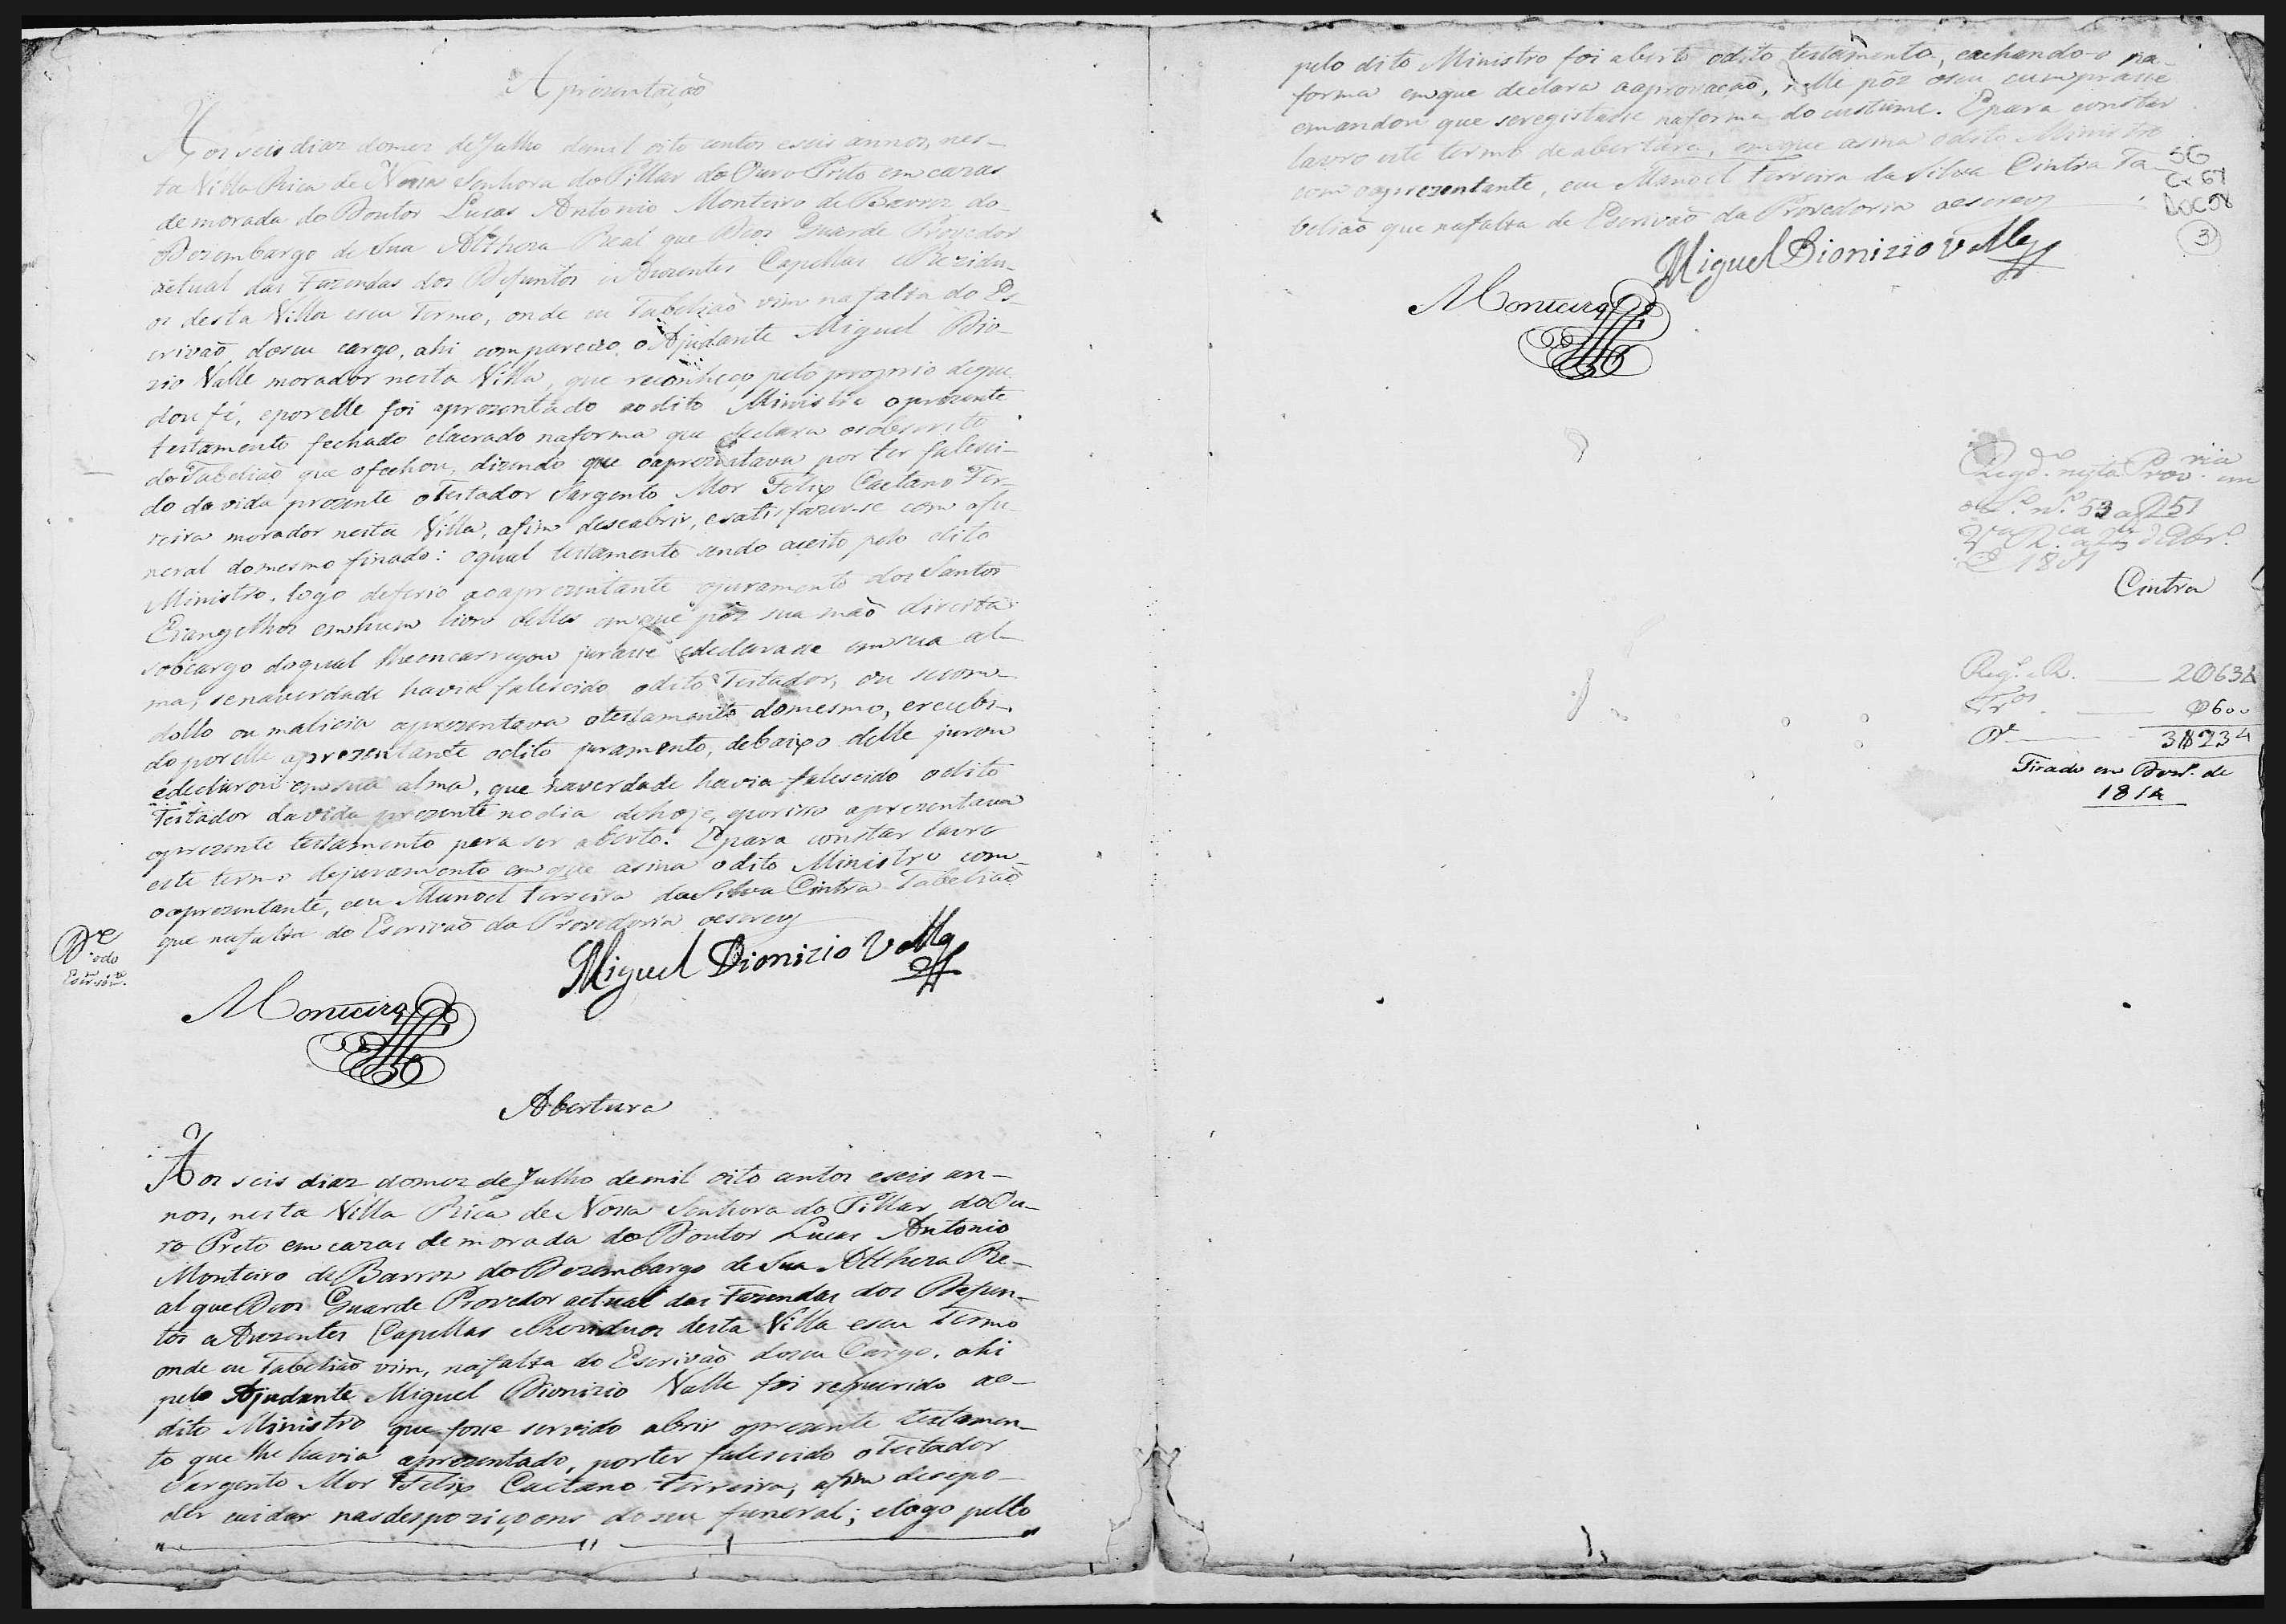 Aprezentação
Aos seis dias domez deJulho demil oito centos eseis annos, nes-
ta Villa Rica de Nossa Senhora do Pillar do Ouro Preto em cazas
de morada do Doutor Lucas Antonio Monteiro de Barros do
Dezembargo de Sua Altheza Real que Deos Guarde Provedor
actual das Fazendas dos Defuntos e Auzentes Capellas eRezidu-
os desta Villa eseu Termo, onde eu Tabeliaõ vim nafalta do Es-
crivaõ doseu cargo, ahi compareceo o Ajudante Miguel Dio-
zio Valle morador nesta Villa, que reconheço pelo proprio deque
dou fé, eporelle foi aprezentado aodito Ministro oprezente
testamento fechado elacrado naforma que declara osobscrito
do Tabeliaõ que ofechou, dizendo que oaprezentava por ter falesci-
do da vida prezente oTestador Sargento Mor Felix Caetano Fer-
reira morador nesta Villa, afim deseabrir, esatisfazerse com ofu-
neral domesmo finado: oqual testamento sendo aceito pelo dito
Ministro, logo deferio aoaprezentante ojuramento dos Santos
Evangelhos emhum livro delles em que pôz sua maõ direita
sobcargo doqual lheencarregou jurasse edeclarasse emsua al-
ma, senaverdade havia falescido odito Testador, ou secom
dollo ou malicia aprezentava otestamento domesmo, erecebi-
do porelle aprezentante odito juramento, debaixo delle jurou
edeclarou emsua alma, que naverdade havia falescido odito
Testador davida prezente nodia dehoje, eporisso aprezentava
oprezente testamento para ser aberto. Epara constar lavro
este termo dejuramento em que asina odito Ministro com
oaprezentante, eeu Manoel Ferreira daSilva Cintra Tabeliaõ
que nafalta do Escrivaõ da Provedoria oescrevy
Miguel Dionizio Valle
Monteiro
Abertura
Aos seis dias domez deJulho demil oito centos eseis an-
nos, nesta Villa Rica de Nossa Senhora do Pillar doOu-
ro Preto em cazas demorada do Doutor Lucas Antonio
Monteiro deBarros do Dezembargo de Sua Altheza Re-
al que Deos Guarde Provedor actual das Fazendas dos Defun-
tos eAuzentes Capellas eReziduos desta Villa eseu Termo
onde eu Tabeliaõ vim, nafalta do Escrivaõ doseu Cargo, ahi
pelo Ajudante Miguel Dionizio Valle foi requerido ao
dito Ministro que fosse servido abrir oprezente testamen-
to que lhe havia aprezentado, porter falescido oTestador
Sargento Mor Felix Caetano Ferreira, afim desepo-
der cuidar nasdespoziçoens doseu funeral; elogo pello
pelo dito Ministro foi aberto odito testamento, eachando-o na
forma emque declara aaprovaçaõ, nelle pôz oseu cumprasse
emandou que seregistasse naforma docustume. Epara constar
lavro este termo deabertura, emque asina odito Ministro
com oaprezentante, eeu Manoel Ferreira da Silva Cintra Ta-
beliaõ que nafalta do Escrivaõ da Provedoria oescrevy
56
Cx 67
DOC 58
3
Miguel Dionizio Valle
Monteiro
Cintra
3$234
Tirado em